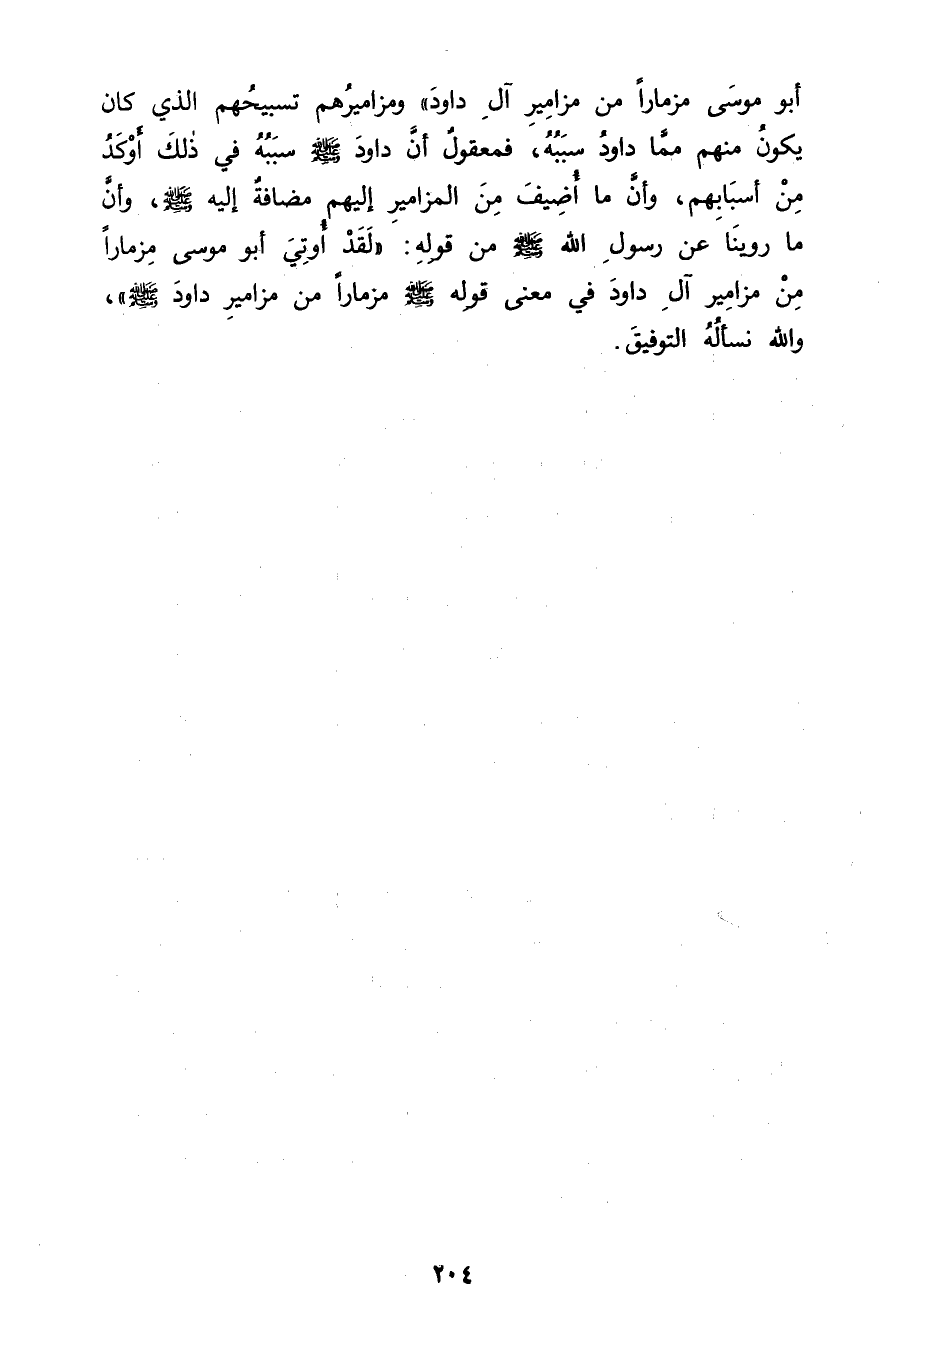 أبو موسَى مزماراً من مزامِيرِ آلِ داودَ» ومزاميرُهم تسبيحُهم الذي كان
يكونُ منهم ممَّا داودُ سبَبُهُ، فمعقولٌ أنَّ داودَ ﷺ سبَبُهُ في ذٰلكَ أَوْكَدُ
مِنْ أسبَابِهم، وأنَّ ما أُضِيفَ مِنَ المزاميرِ إليهم مضافةٌ إليه ﷺ، وأنَّ
ما روينَا عن رسولِ الله ﷺ من قولِهِ: «لَقَدْ أُوتِيَ أبو موسى مِزماراً
مِنْ مزامِيرِ آلِ داودَ في معنى قولِه ﷺ مزماراً من مزاميرِ داودَ ﷺ»،
والله نسألُهُ التوفيقَ.
٢٠٤